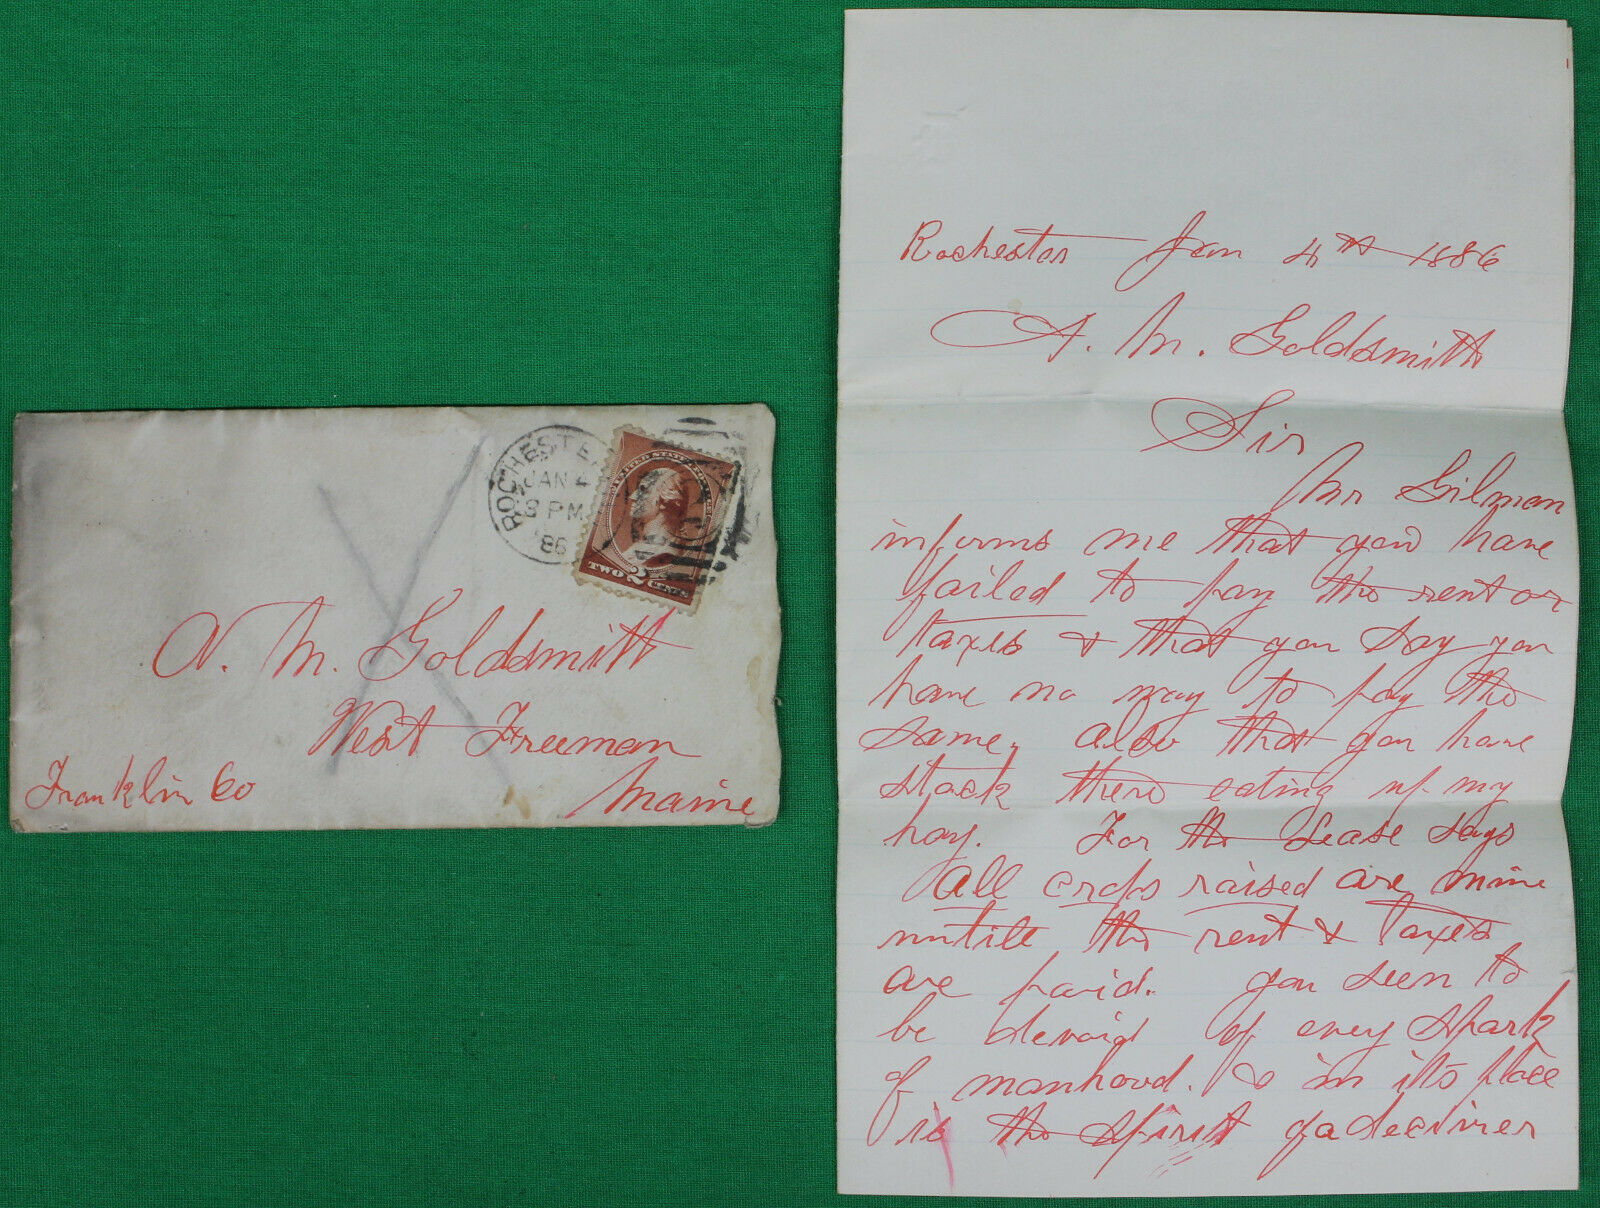 ROCHESTER
JAN 4
8 PM
86
UNITED STATES
TWO 2 CENTS
A. M. Goldsmith
West Freeman
Franklin Co
Maine
Rochester Jan 4th 1886
A. M. Goldsmith
Sir
Mr Gilman
informs me that you have
failed to pay the rent or
taxes & that you say you
have no way to pay the
same, also that you have
stock there eating up my
hay. For the Lease says
All crops raised are mine
untill the rent & taxes
are paid. you seem to
be devoid of every spark
of manhood. & in its place
is the spirit of a deceiver